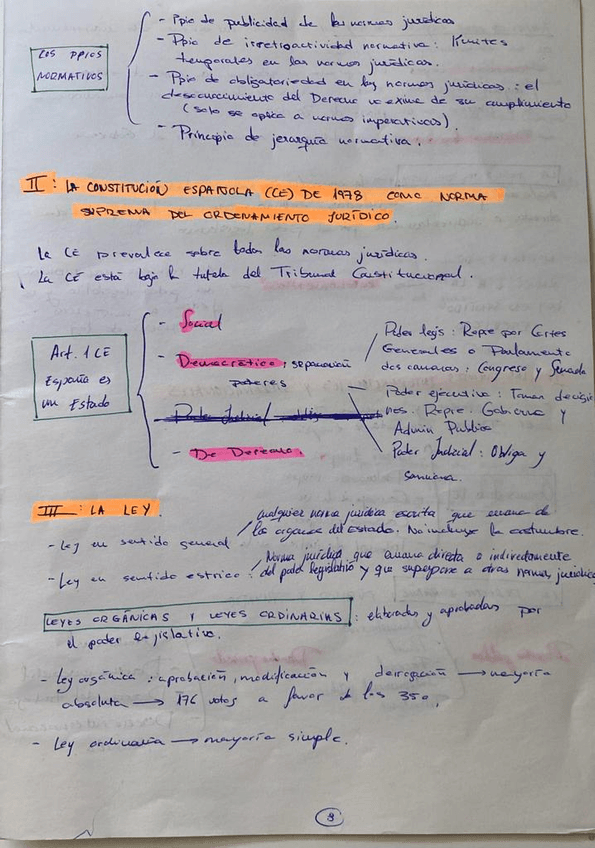 LOS PPIOS
NORMATIVOS
- Ppio de publicidad de las normas jurídicas
- Ppio de irretroactividad normativa: límites
temporales en las normas jurídicas.
- Ppio de obligatoriedad en las normas jurídicas: el
desconocimiento del Derecho no exime de su cumplimiento
(solo se aplica a normas imperativas).
- Principio de jerarquía normativa.
II: LA CONSTITUCIÓN ESPAÑOLA (CE) DE 1978 COMO NORMA
SUPREMA DEL ORDENAMIENTO JURÍDICO.
La CE prevalece sobre todas las normas jurídicas.
La CE está bajo la tutela del Tribunal Constitucional.
Art. 1 CE
España es
un Estado
- Social
- Democrático, separación
poderes
Poder Judicial
- De Derecho.
Poder legis: Repre por Cortes
Generales o Parlamento
dos cámaras: Congreso y Senado
Poder ejecutivo: Toman decisio
nes. Repre. Gobierno y
Admin Pública
Poder Judicial: Obliga y
sanciona.
III: LA LEY.
- Ley en sentido general
cualquier norma jurídica escrita que emana de
los órganos del Estado. No incluye la costumbre.
- Ley en sentido estricto:
Norma jurídica que emana directa o indirectamente
del poder legislativo y que superpone a otras normas jurídicas
LEYES ORGÁNICAS Y LEYES ORDINARIAS: elaboradas y aprobadas por
el poder legislativo.
- Ley orgánica: aprobación, modificación y derogación → mayoría
absoluta → 176 votos a favor de los 350.
- Ley ordinaria → mayoría simple.